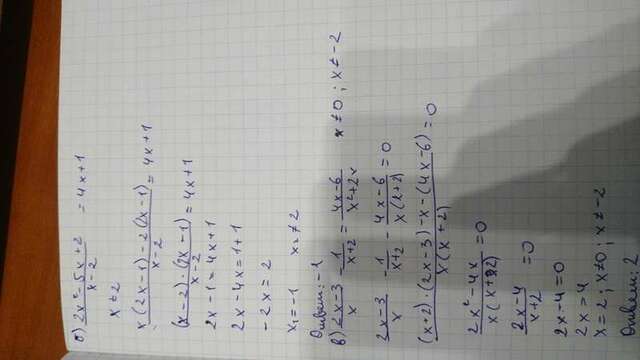 б) (2x² - 5x + 2)/(x - 2) = 4x + 1
x ≠ 2
(x(2x - 1) - 2(2x - 1))/(x - 2) = 4x + 1
((x - 2)·(2x - 1))/(x - 2) = 4x + 1
2x - 1 = 4x + 1
2x - 4x = 1 + 1
-2x = 2
x₁ = -1 x₂ ≠ 2
Ответ: -1
в) (2x - 3)/x - 1/(x + 2) = (4x - 6)/(x² + 2x) x ≠ 0 ; x ≠ -2
(2x - 3)/x - 1/(x + 2) - (4x - 6)/(x(x + 2)) = 0
((x + 2)·(2x - 3) - x - (4x - 6))/(x(x + 2)) = 0
(2x² - 4x)/(x(x + 2)) = 0
(2x - 4)/(x + 2) = 0
2x - 4 = 0
2x = 4
x = 2 ; x ≠ 0 ; x ≠ -2
Ответ: 2